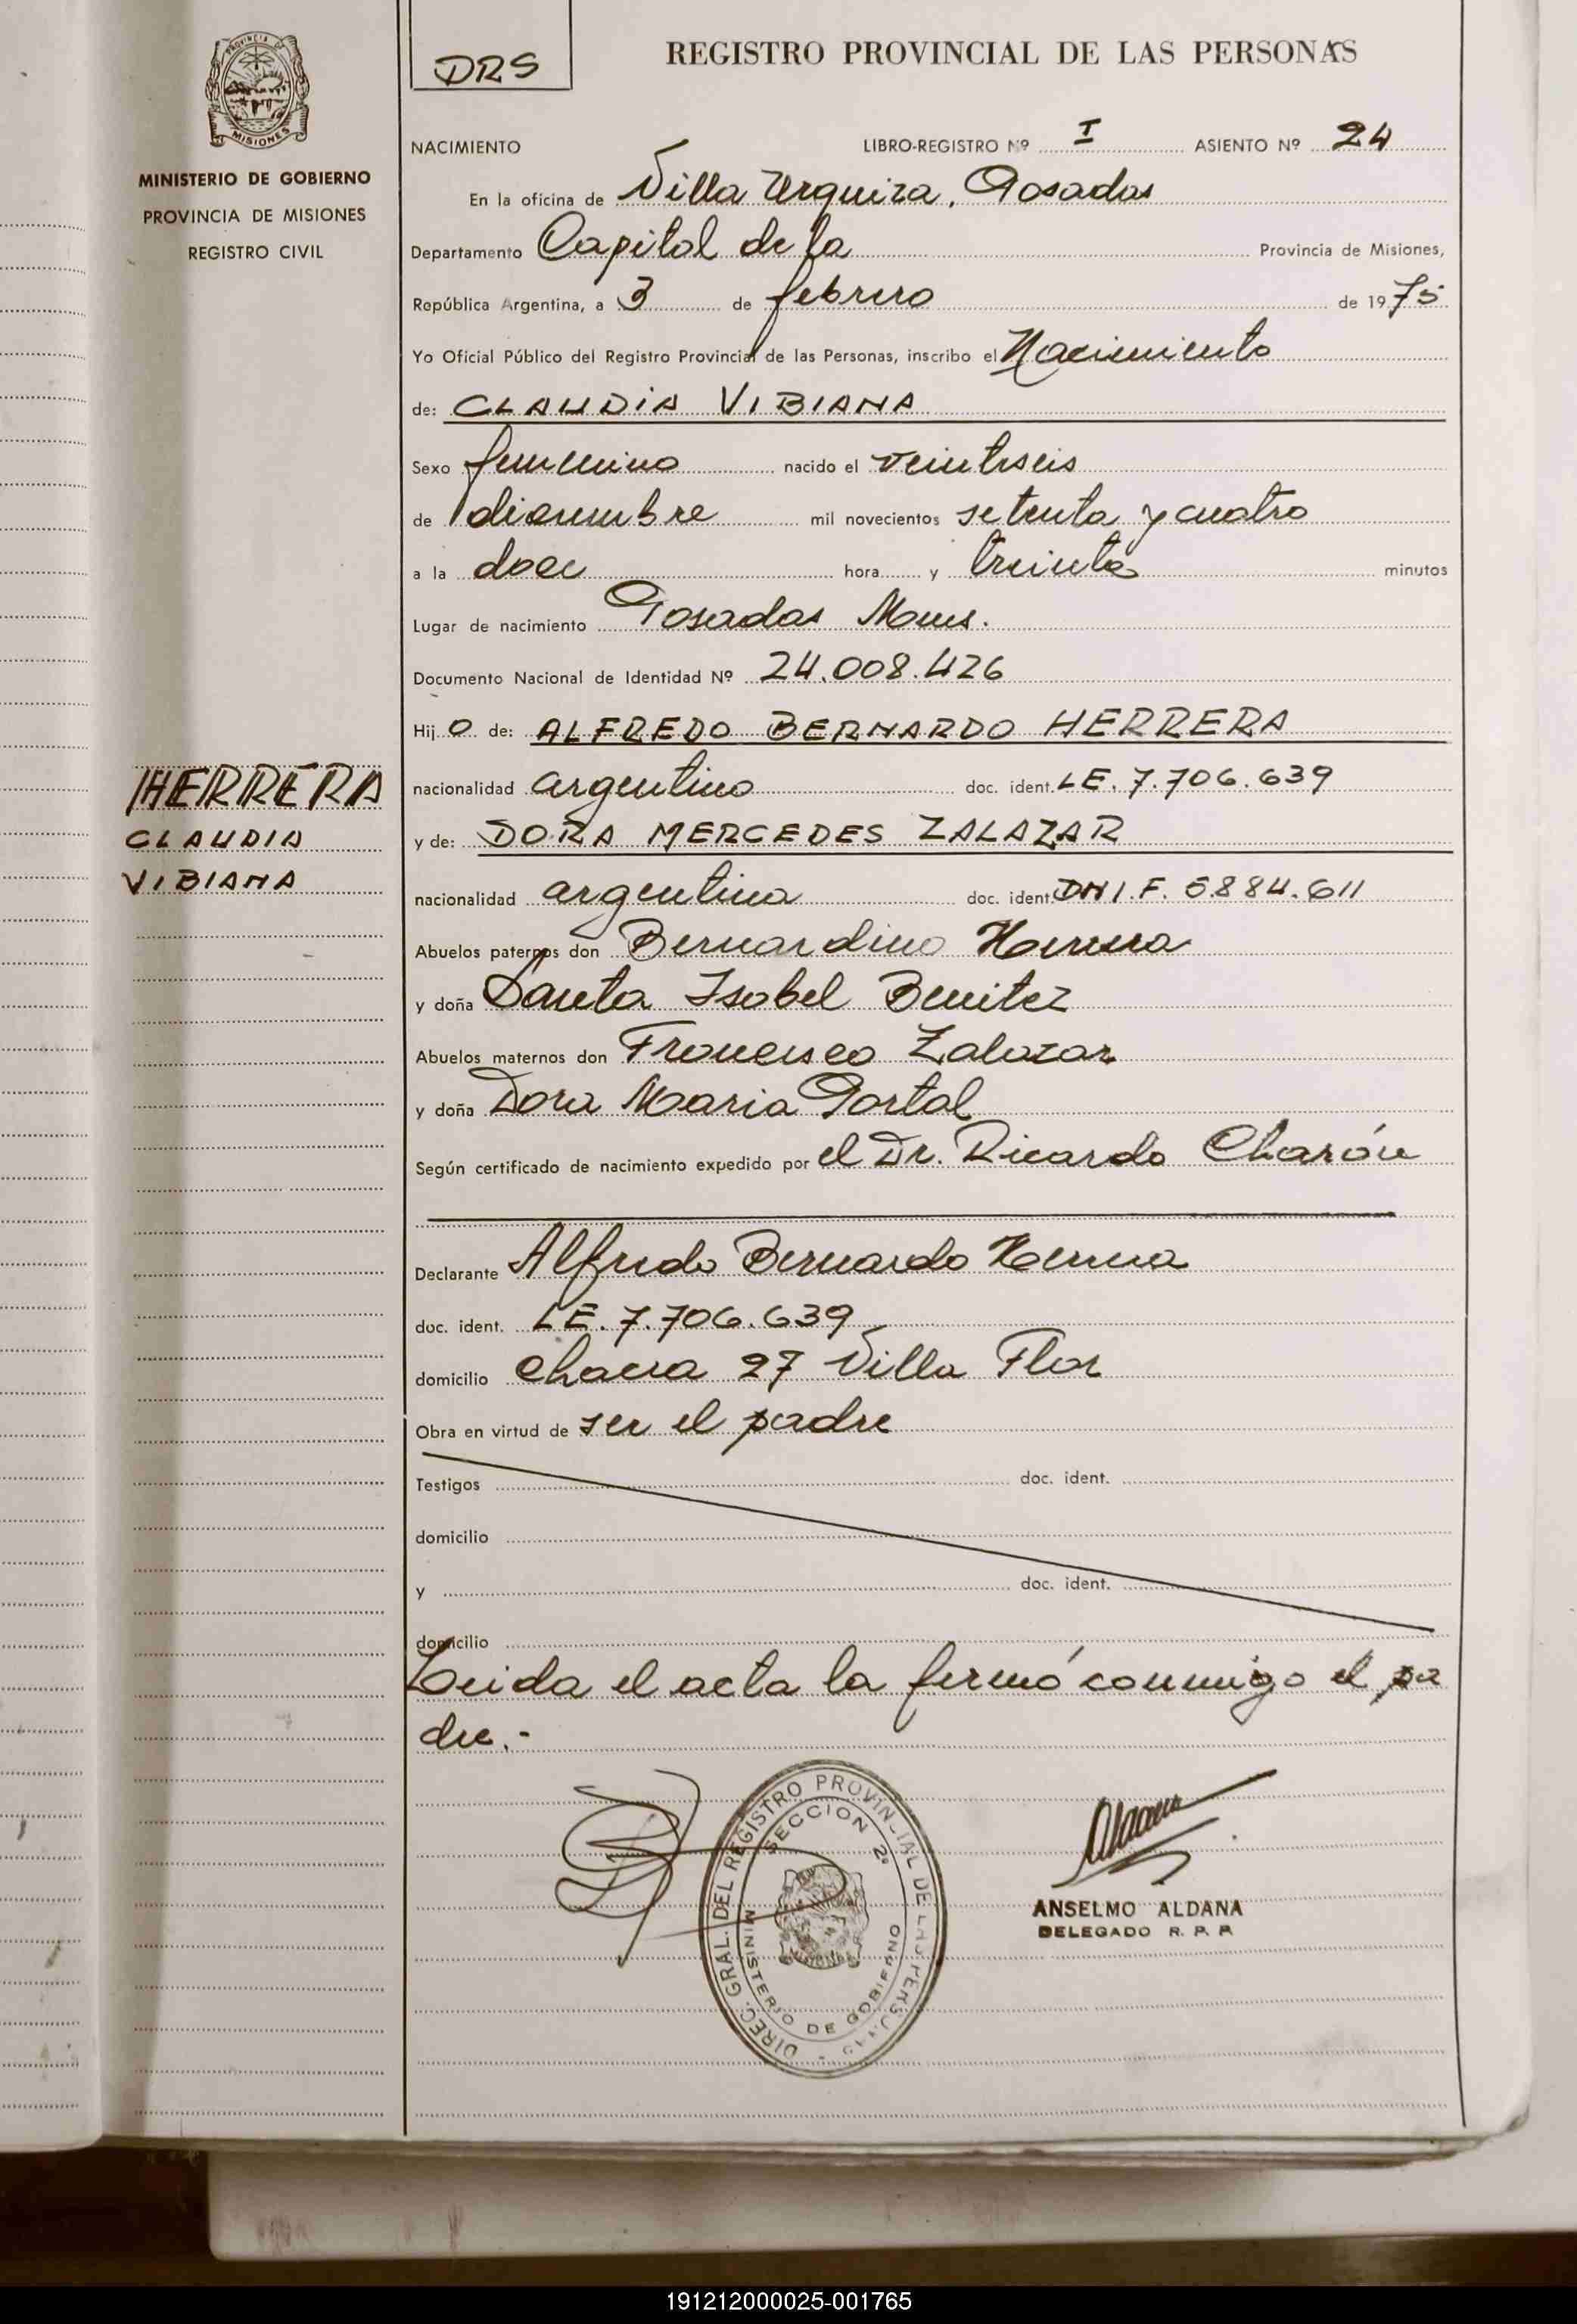 PROVINCIA DE
MISIONES
MINISTERIO DE GOBIERNO
PROVINCIA DE MISIONES
REGISTRO CIVIL
HERRERA
CLAUDIA
VIBIANA
DRS
REGISTRO PROVINCIAL DE LAS PERSONAS
NACIMIENTO LIBRO-REGISTRO Nº I ASIENTO Nº 24
En la oficina de Villa Urquiza, Posadas
Departamento Capital de la Provincia de Misiones,
República Argentina, a 3 de febrero de 1975
Yo Oficial Público del Registro Provincial de las Personas, inscribo el Nacimiento
de: CLAUDIA VIBIANA
Sexo femenino nacido el veintiseis
de diciembre mil novecientos setenta y cuatro
a la doce hora y treinta minutos
Lugar de nacimiento Posadas Mnes.
Documento Nacional de Identidad Nº 24.008.426
Hij a de: ALFREDO BERNARDO HERRERA
nacionalidad argentino doc. ident. LE. 7.706.639
y de: DORA MERCEDES ZALAZAR
nacionalidad argentina doc. ident. DNI. F. 5.884.611
Abuelos paternos don Bernardino Herrera
y doña Santa Isabel Benitez
Abuelos maternos don Francisco Zalazar
y doña Dora Maria Portal
Según certificado de nacimiento expedido por el Dr. Ricardo Charón
Declarante Alfredo Bernardo Herrera
doc. ident. LE. 7.706.639
domicilio chacra 27 Villa Flor
Obra en virtud de ser el padre
Testigos doc. ident.
domicilio
y doc. ident.
domicilio
Leida el acta la firmó conmigo el pa
dre.-
DIREC. GRAL. DEL REGISTRO PROVINCIAL DE LAS PERSONAS
SECCION 2ª
MINISTERIO DE GOBIERNO
MISIONES
Aldana
ANSELMO ALDANA
DELEGADO R. P. P.
191212000025-001765